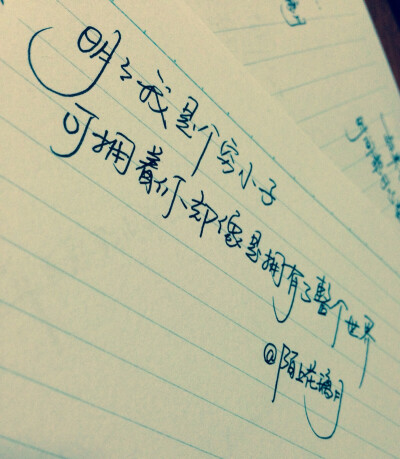 明明我是个穷小子
可拥着你却像是拥有了整个世界
@陌上花璃月